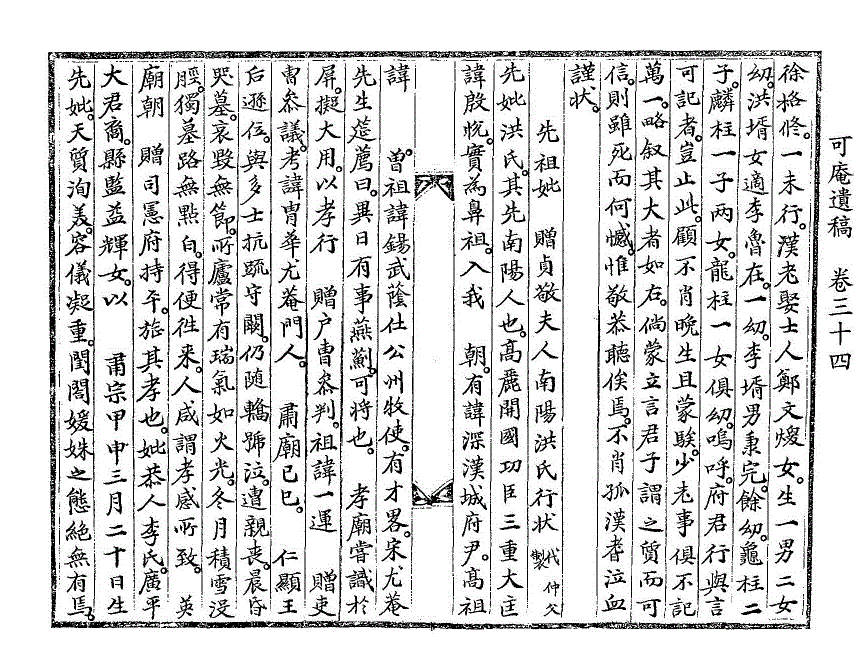 可庵遺稿　卷三十四
徐格修。一未行。漢老娶士人鄭文煖女。生一男二女
幼。洪壻女適李魯在。一幼。李壻男秉完。餘幼。龜柱二
子。麟柱一子兩女。龍柱一女俱幼。嗚呼。府君行與言
可記者。豈止此。顧不肖晩生且蒙騃。少老事俱不記
萬一。略叙其大者如右。倘蒙立言君子謂之質而可
信。則雖死而何憾。惟敬恭聽俟焉。不肖孤漢耆泣血
謹狀。
先祖妣　贈貞敬夫人南陽洪氏行狀　代仲父製
先妣洪氏。其先南陽人也。高麗開國功臣三重大匡
諱殷悅。實爲鼻祖。入我　朝。有諱深漢城府尹。高祖
諱　曾祖諱錫武蔭仕公州牧使。有才畧。宋尤菴
先生筵薦曰。異日有事燕薊。可將也。　孝廟嘗識於
屛。擬大用。以孝行　贈戶曹參判。祖諱一運　贈吏
曹參議。考諱胄華尤菴門人。　肅廟己巳。　仁顯王
后遜位。與多士抗疏守闕。仍随轎號泣。遭親喪。晨昏
哭墓。哀毁無節。所廬常有瑞氣如火光。冬月積雪沒
脛。獨墓路無點白。得便徃來。人咸謂孝感所致。　英
廟朝　贈司憲府持平。旌其孝也。妣恭人李氏。廣平
大君裔。縣監益輝女。以　肅宗甲申三月二十日生
先妣。天質洵美。容儀凝重。閨閤媛姝之態絶無有焉。